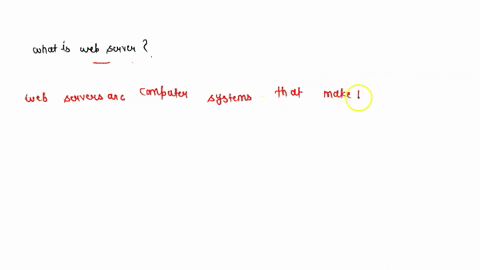 what is web server ?
web servers are computer systems that make